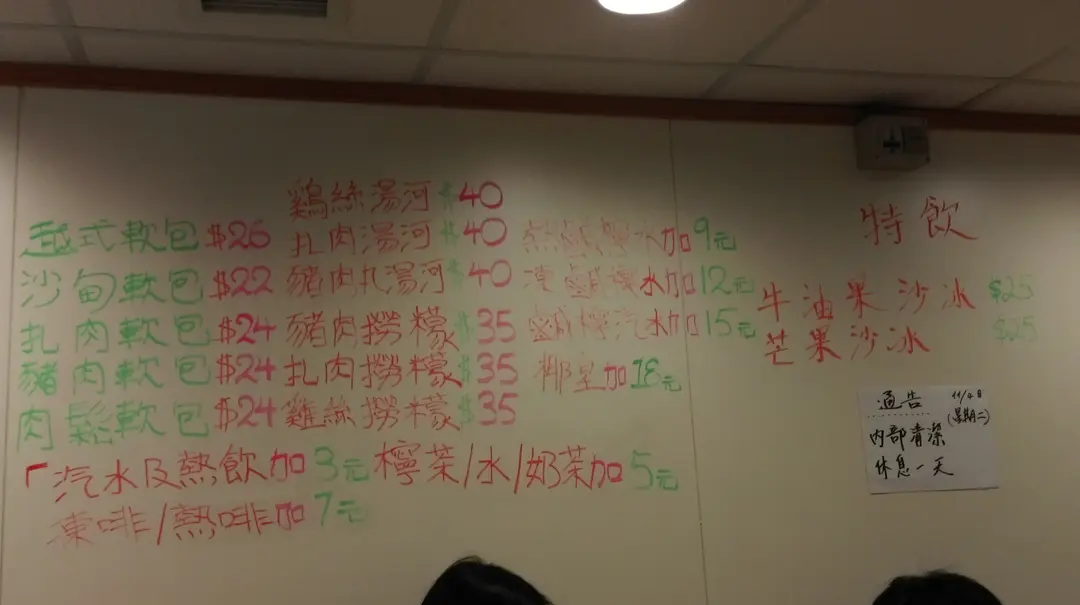 鷄絲湯河 $40
越式軟包 $26 扎肉湯河 $40 熱鹹檸水加 9元
沙甸軟包 $22 豬肉扎湯河 $40 凍鹹檸水加 12元
扎肉軟包 $24 豬肉撈檬 $35 鹹檸汽水加 15元
豬肉軟包 $24 扎肉撈檬 $35 椰皇加 18元
肉鬆軟包 $24 雞絲撈檬 $35
「汽水及熱飲加 3元 檸茶/水/奶茶加 5元
凍啡/熱啡加 7元
特飲
牛油果沙冰 $25
芒果沙冰 $25
通告 11/4日
(星期二)
內部清潔
休息一天